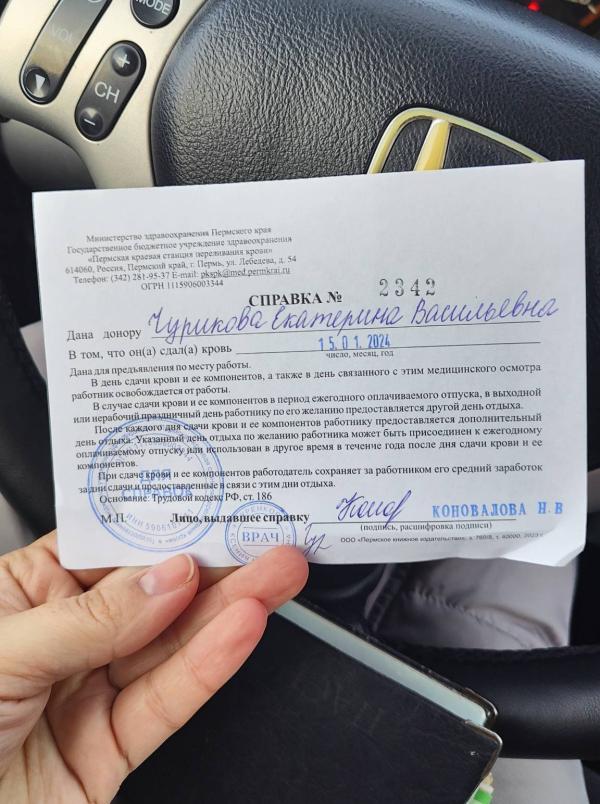 MODE
VOL
+
CH
−
Министерство здравоохранения Пермского края
Государственное бюджетное учреждение здравоохранения
«Пермская краевая станция переливания крови»
614060, Россия, Пермский край, г. Пермь, ул. Лебедева, д. 54
Телефон: (342) 281-95-37 E-mail: pkspk@med.permkrai.ru
ОГРН 1115906003344
СПРАВКА № 2342
Дана донору Чурикова Екатерина Васильевна
В том, что он(а) сдал(а) кровь 15.01.2024
число, месяц, год
Дана для предъявления по месту работы.
В день сдачи крови и ее компонентов, а также в день связанного с этим медицинского осмотра
работник освобождается от работы.
В случае сдачи крови и ее компонентов в период ежегодного оплачиваемого отпуска, в выходной
или нерабочий праздничный день работнику по его желанию предоставляется другой день отдыха.
После каждого дня сдачи крови и ее компонентов работнику предоставляется дополнительный
день отдыха. Указанный день отдыха по желанию работника может быть присоединен к ежегодному
оплачиваемому отпуску или использован в другое время в течение года после дня сдачи крови и ее
компонентов.
При сдаче крови и ее компонентов работодатель сохраняет за работником его средний заработок
за дни сдачи и предоставленные в связи с этим дни отдыха.
Основание: Трудовой кодекс РФ, ст. 186
ДЛЯ
СПРАВОК
М.П. Лицо, выдавшее справку КОНОВАЛОВА Н.В
(подпись, расшифровка подписи)
ВРАЧ
ООО «Пермское книжное издательство», з. 760/8, т. 40000, 2023 г.